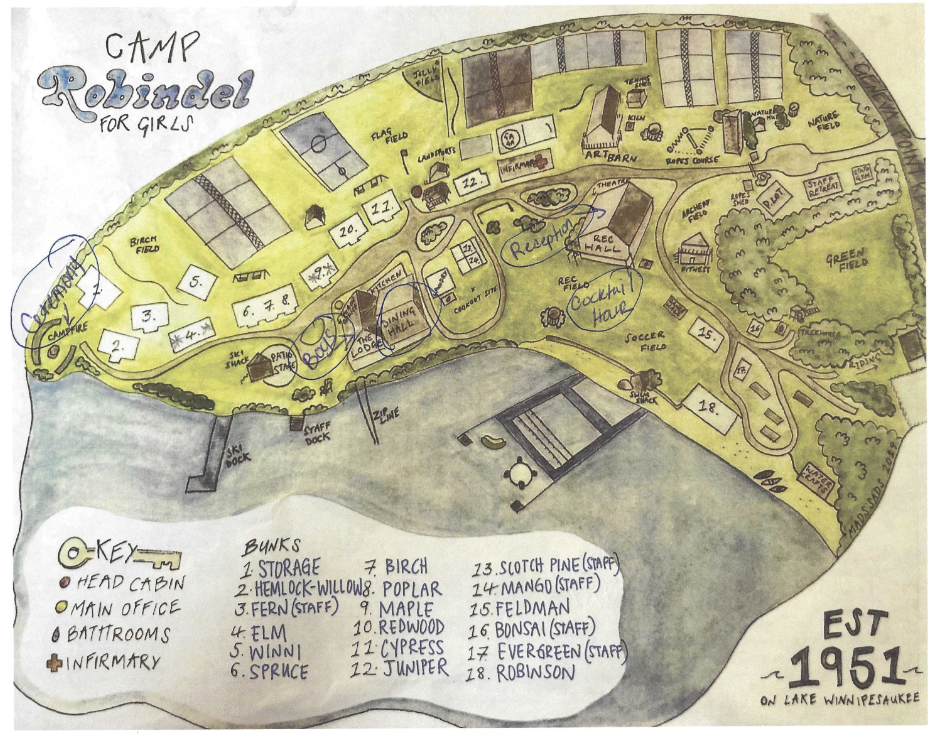 CAMP
Robindel
FOR GIRLS
JILLI
FIELD
FLAG
FIELD
LANDSPORTS
GA
GA
INFIRMARY
12.
11.
10.
9.
TENNIS
SHED
KILN
ART BARN
ROPES COURSE
NATURE
HUT
NATURE
FIELD
ROPES
SHED
PILOT
STAFF
RETREAT
STAFF
GYM
ARCHERY
FIELD
THEATRE
REC
HALL
Reception
FITNESS
GREEN
FIELD
BIRCH
FIELD
Ceremony
CAMPFIRE
1.
2.
3.
4.
5.
6. 7. 8.
KITCHEN
DINING
HALL
THE
LODGE
COOKOUT SITE
13.
14.
REC
FIELD
Cocktail
SOCCER
FIELD
SKI
SHACK
PATIO
STAGE
ZIP
LINE
STAFF
DOCK
SKI
DOCK
SWIM
SHACK
15.
16
17.
18.
RIDING
WATER
CRAFTS
KEY
HEAD CABIN
MAIN OFFICE
BATHROOMS
INFIRMARY
BUNKS
1 STORAGE
2. HEMLOCK-WILLOW
3. FERN (STAFF)
4. ELM
5. WINNI
6. SPRUCE
7 BIRCH
8. POPLAR
9. MAPLE
10. REDWOOD
11. CYPRESS
12. JUNIPER
13. SCOTCH PINE (STAFF)
14. MANGO (STAFF)
15. FELDMAN
16. BONSAI (STAFF)
17 EVERGREEN (STAFF)
18. ROBINSON
EST
1951
ON LAKE WINNIPESAUKEE